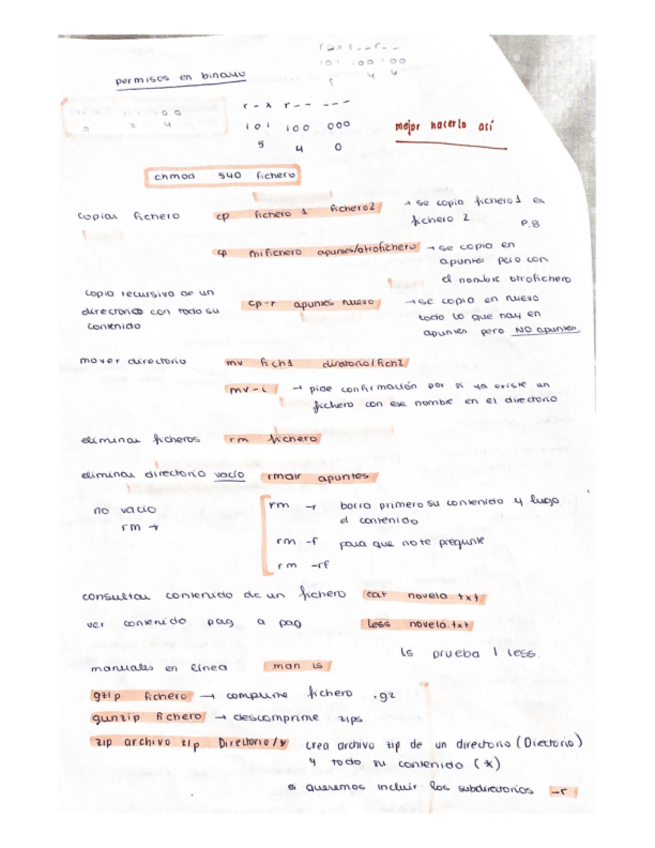 r - x r - - r - -
101 100 100
5 4 4
permisos en binario
r - x r - - - - -
101 100 000
5 4 0
mejor hacerlo así
chmod 540 fichero
copiar fichero cp fichero 1 fichero2 → se copia fichero1 en
fichero 2 P.8
cp mifichero apuntes/otrofichero → se copia en
apuntes pero con
el nombre otrofichero
copia recursiva de un
directorio con todo su
contenido
cp -r apuntes nuevo → se copia en nuevo
todo lo que hay en
apuntes pero NO apuntes
mover directorio mv fich1 directorio/fich2
mv -i → pide confirmación por si ya existe un
fichero con ese nombre en el directorio
eliminar ficheros rm fichero
eliminar directorio vacío rmdir apuntes
no vacío
rm -r
rm -r borra primero su contenido y luego
el contenido
rm -f para que no te pregunte
rm -rf
consultar contenido de un fichero cat novela.txt
ver contenido pag a pag less novela.txt
ls prueba | less.
manuales en línea man ls
gzip fichero → comprime fichero .gz
gunzip fichero → descomprime zips
zip archivo zip Directorio/* crea archivo zip de un directorio (Directorio)
y todo su contenido (*)
si queremos incluir los subdirectorios -r